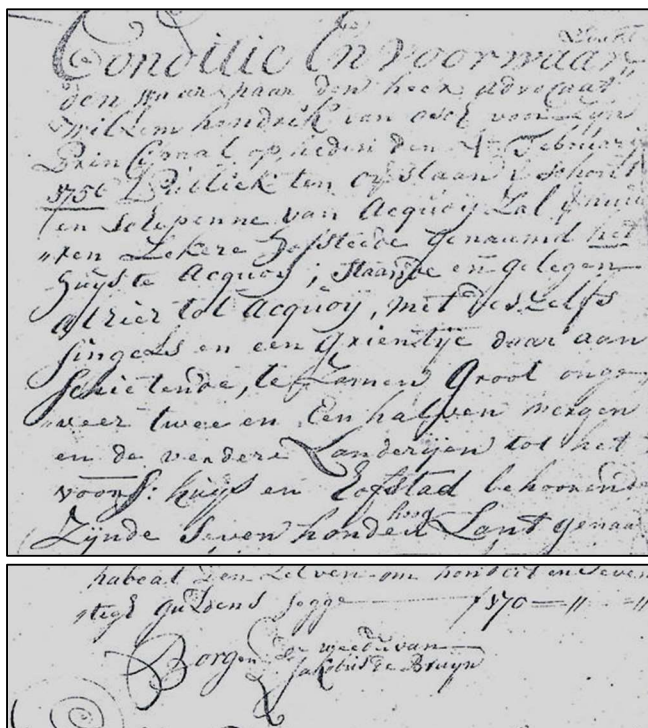 Conditie En voorwaar
den waar naar den heer Advocaat
Willem hendrik van Osch voor Zijn
Principaal op heden den 4 Februarij
1756 Publiek ten Overstaan Schout
en Schepenne van Acquoy Zal
een Zekere Hofstede genaamd het
huijs te Acquoij, staande en gelegen
alhier tot Acquoij, met deszelfs
singels en een Grientije daar aan
schietende, te Zamen Groot onge
veer twee en Een halven mergen
en de verdere Landerijen tot het
voors: huijs en Hofstad behoorende
Zijnde Seven hondert Lant genaa
habeat den Selven om hondert en seven
stegh guldens segge ƒ 170 — // — //
Borgen de weedu van
Jakobus de Bruyn